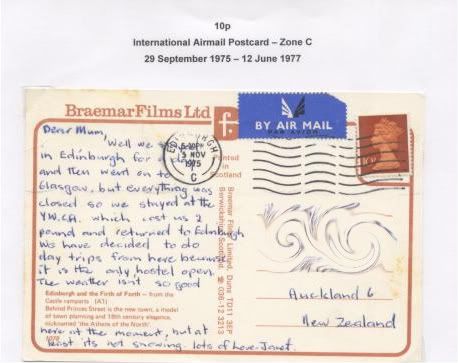 10p
International Airmail Postcard – Zone C
29 September 1975 – 12 June 1977
Braemar Films Ltd
f.
BY AIR MAIL
PAR AVION
EDINBURGH
5 NOV
1975
C
Printed in
Scotland
Braemar Films Limited, Duns TD11 3EP
Berwickshire, Scotland. 036-12 3213
Dear Mum,
Well we
in Edinburgh for a day
and then went on to
Glasgow, but everything was
closed so we stayed at the
Y.W.C.A. which cost us 2
pound and returned to Edinburgh
We have decided to do
day trips from here because
it is the only hostel open.
The weather isnt so good
Edinburgh and the Firth of Forth – from the
Castle ramparts (A1)
Behind Princes Street is the new town, a model
of town planning and 18th century elegance,
nicknamed 'the Athens of the North'
here at the moment, but at
least its not snowing. lots of love-Janet.
Auckland 6
New Zealand